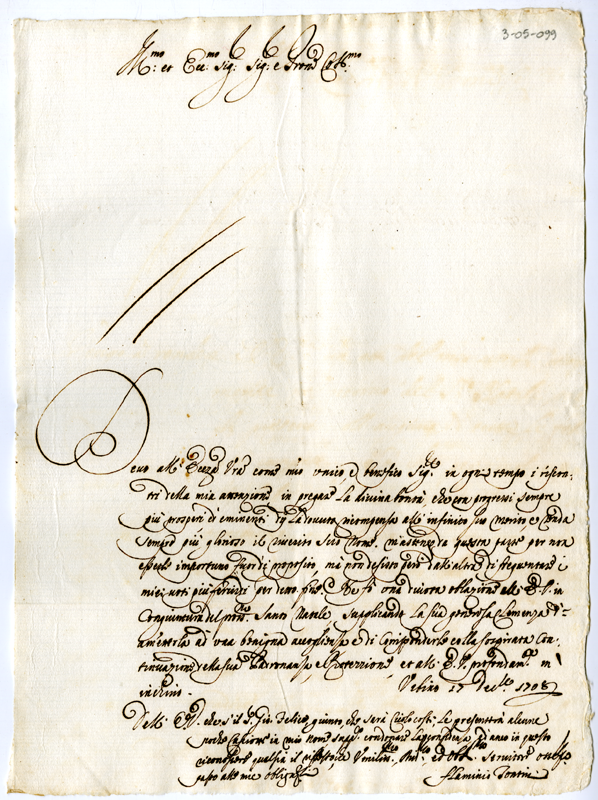 3-05-099
Ill.mo et Ecc.mo Sig.r Sig.r e Pron Col.mo
Devo all' Ecc.za V'ra come mio unico, e benefico Sig.re in ogni tempo i riscon-
tri della mia attenzione in pregare la divina bontà che con progressi sempre
più prosperi ed eminenti dia la dovuta ricompensa all' infinito suo merito e renda
sempre più glorioso il riverito Suo Nome. m'astengo da questa parte per non
essere importuno fuor di proposito, ma non desisto però dall' altra di frequentare i
miei voti più fervidi per detto fine. Ne fò una divota oblazione all' E. V. in
Congiuntura del pros.mo Santo Natale, supplicando la sua generosa Clemenza d'
ammetterla ad una benigna accoglienza e di Corrispondere colla sospirata Con-
tinuazione della sua Padronanza, e Protezione, et all' E. V. profondam.te m'
inchino. Urbino 17 Dec.bre 1708
Dell' E. V. che s'il S. Gio. Felice giunto, che sarà costì le presenterà alcune
poche in mio nome condonare la confidenza, ed anco in questo
riconoscere qualsia il rispetto, Umiliss.mo Dev.mo ed Obl. Servitore
Flaminio